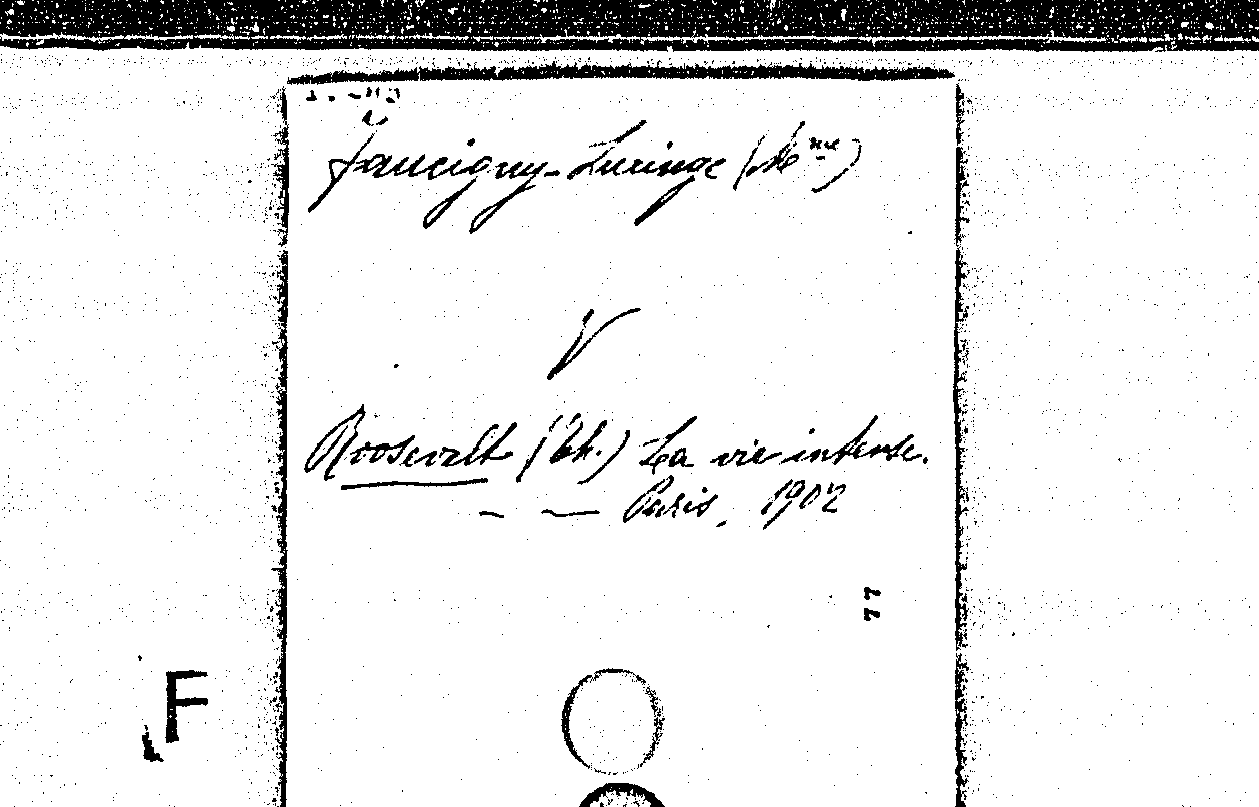 Faucigny-Lucinge (Mme)
V
Roosevelt (Th.) La vie intense.
— — Paris, 1902
77
F